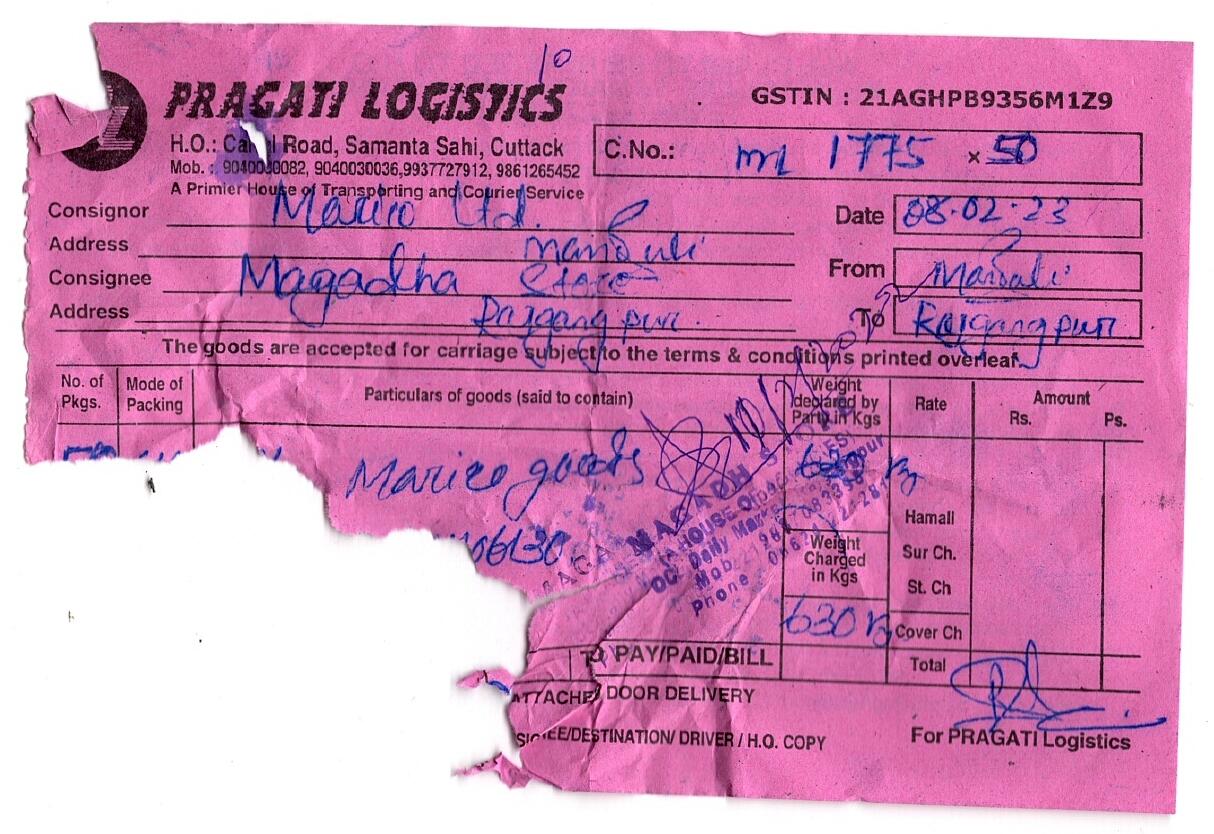 10
PRAGATI LOGISTICS
GSTIN : 21AGHPB9356M1Z9
H.O.: Canal Road, Samanta Sahi, Cuttack
Mob. : 9040030082, 9040030036,9937727912, 9861265452
A Primier House of Transporting and Courier Service
C.No.: 1775 × 50
Consignor Marico Ltd.
Date 08.02.23
Address
Consignee Magadha Store
From
Address Rajgangpur
To Rajgangpur
The goods are accepted for carriage subject to the terms & conditions printed overleaf.
No. of Pkgs. Mode of Packing Particulars of goods (said to contain) Weight declared by Party in Kgs Rate Amount Rs. Ps.
Marico goods 630 Kg
Hamali
06130
MAGADH STORE
OC Daily Market
Mob
Phone
Weight Charged in Kgs
Sur Ch.
St. Ch
630 Kg Cover Ch
TO PAY/PAID/BILL Total
ATTACHE DOOR DELIVERY
SIGNEE/DESTINATION/ DRIVER / H.O. COPY
For PRAGATI Logistics